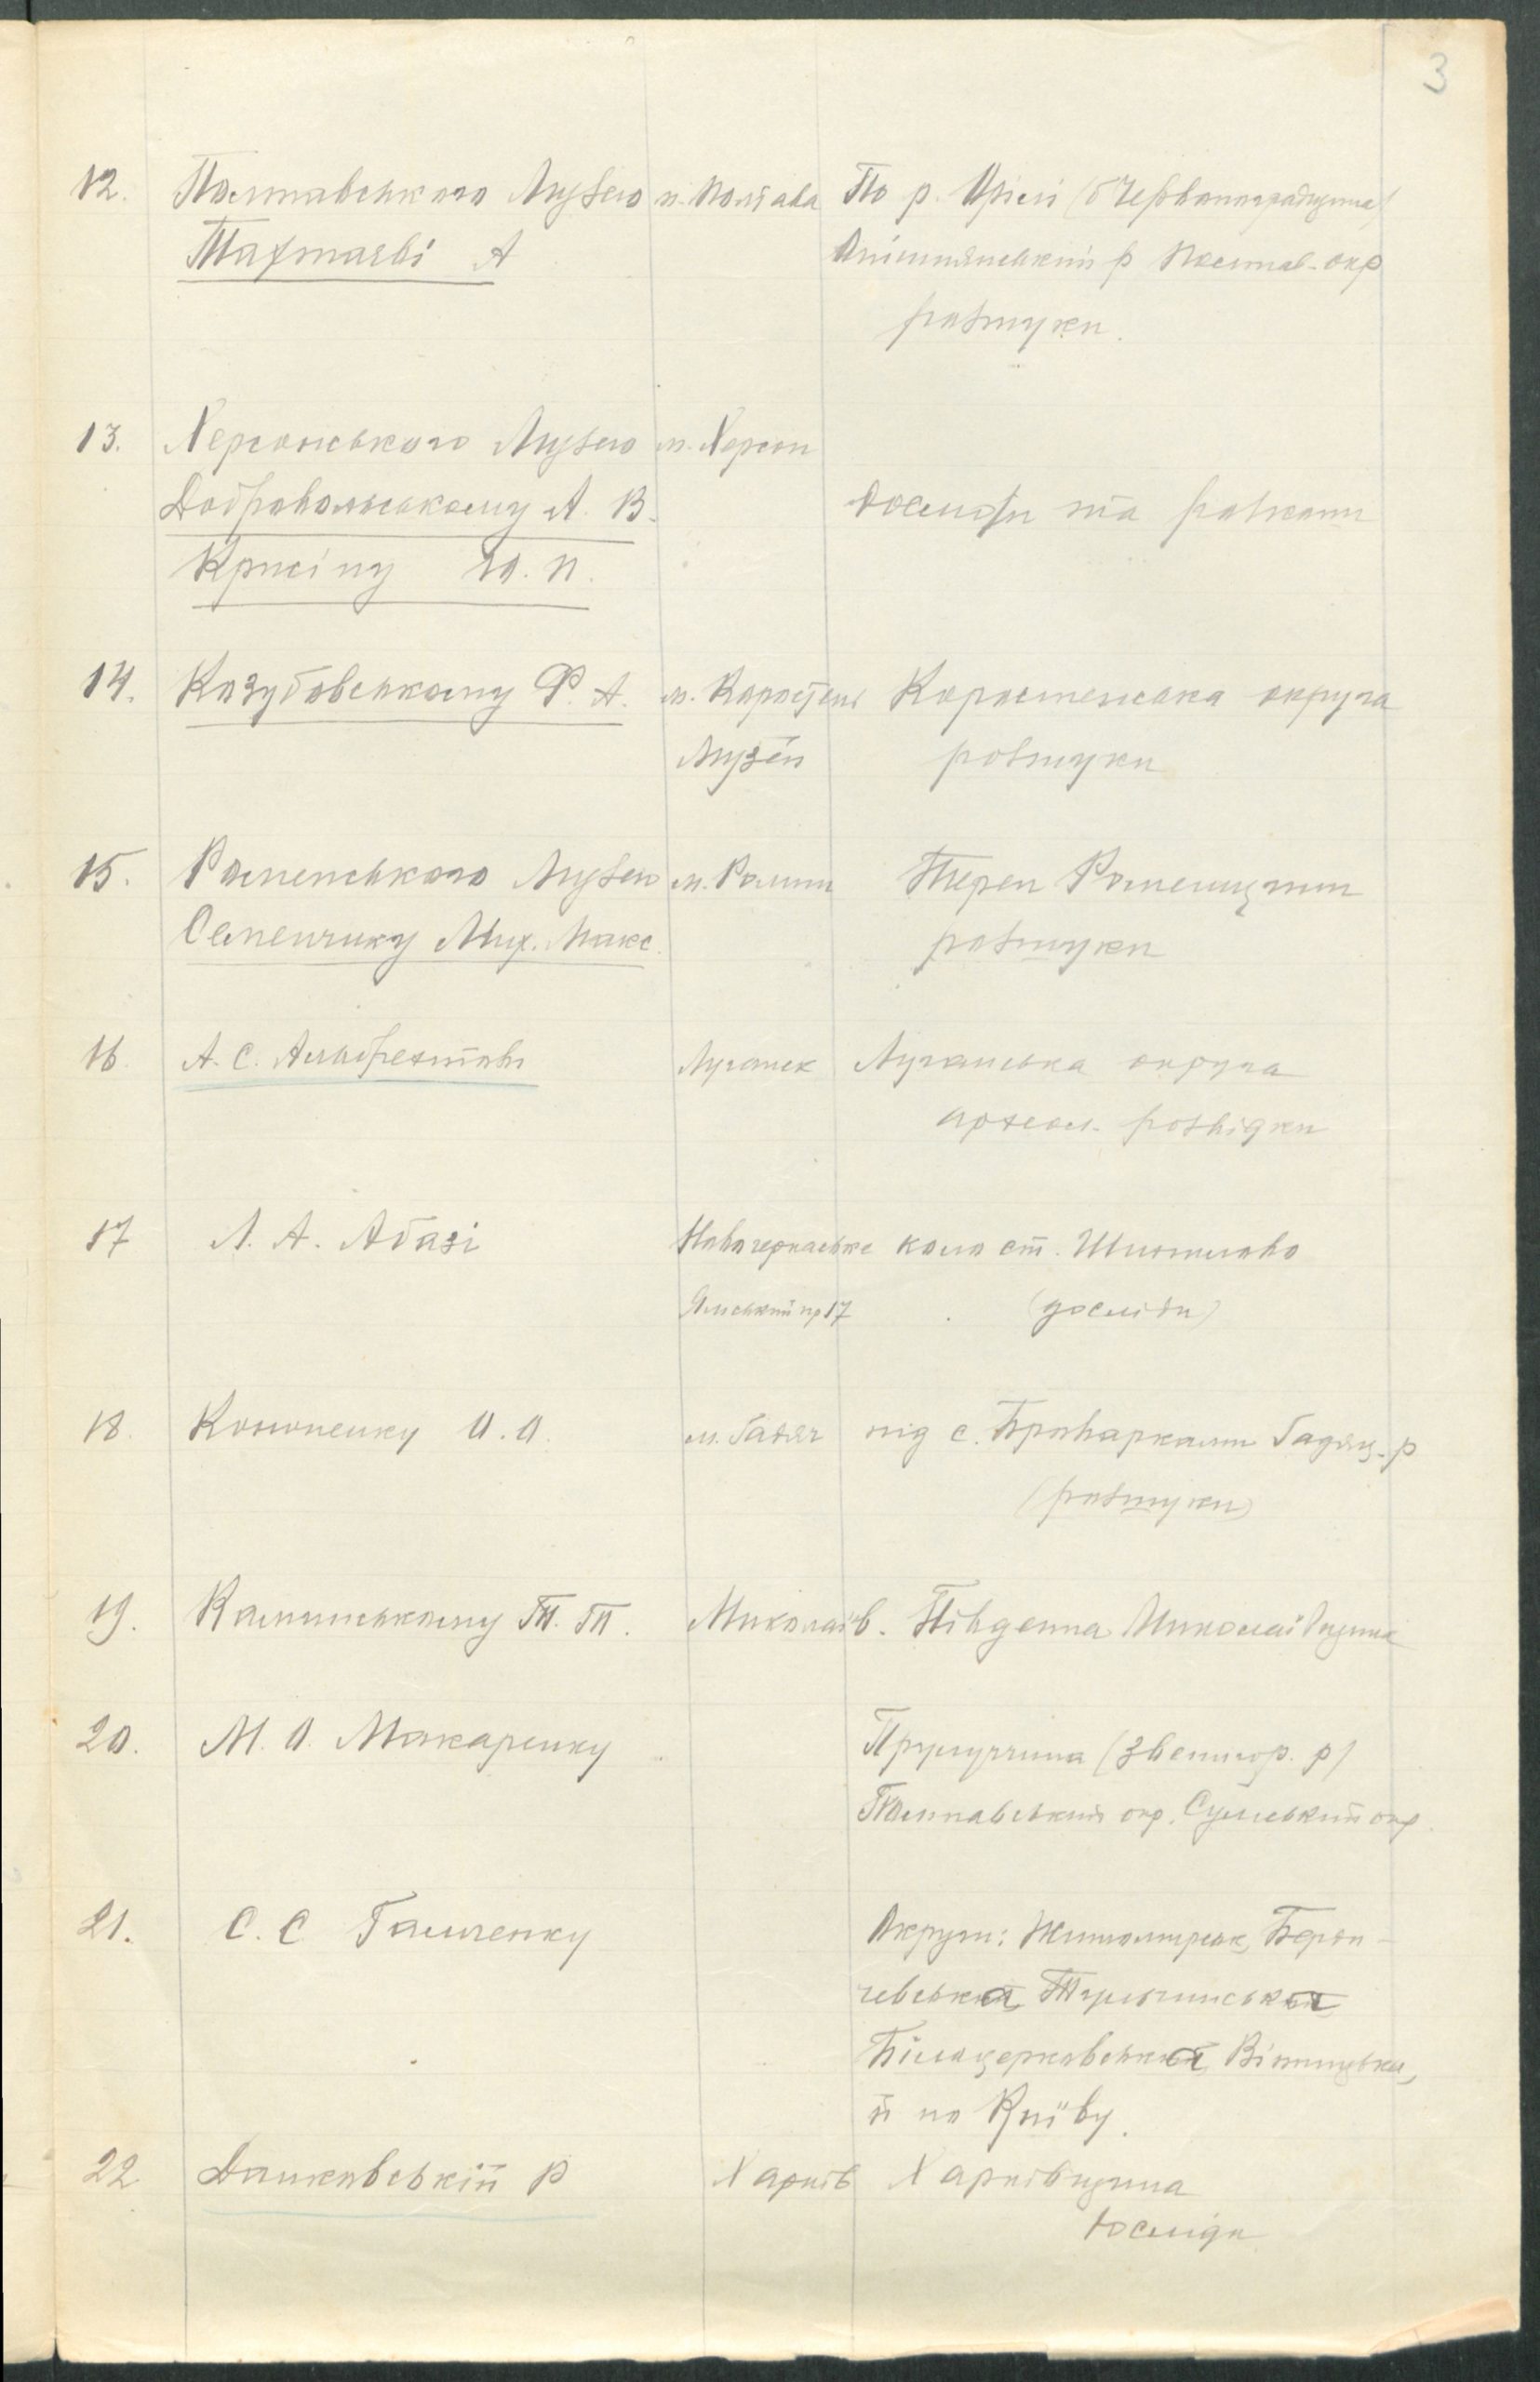 3
12. Полтавського Музею м. Полтава По р. Орелі (б Червоноградщина)
Тахтаєві А Опішнянський р Полтав. окр
розшуки.
13. Херсонського Музею м. Херсон
Добровольському А. В. Досліди та розкопи
Крисіну Ю. П.
14. Козубовському Ф. А. м. Коростень Коростенська округа
Музей розшуки
15. Роменського Музею м. Ромни Терен Роменщини
Семенчику Мих. Макс. розшуки
16. А. С. Альбрехтові Луганськ Луганська округа
археол. розвідки
17 Л. А. Абазі Новочеркаське коло ст. Шипилово
Ямський пр 17 (досліди)
18. Кононенку И. О. м. Гадяч під с. Броварками Гадяц. р
(розшуки)
19. Камінському Т. Т. Миколаїв. Південна Миколаївщина
20. М. О. Макаренку Прилуччина (Звенигор. р)
Полтавський окр. Сумський окр.
21. С. С Гамченку Округи: Житомирськ, Берди-
чевська, Тульчинська,
Білоцерковська, Вінницька,
й по Київу.
22 Данковській Р Харків Харківщина
Досліди